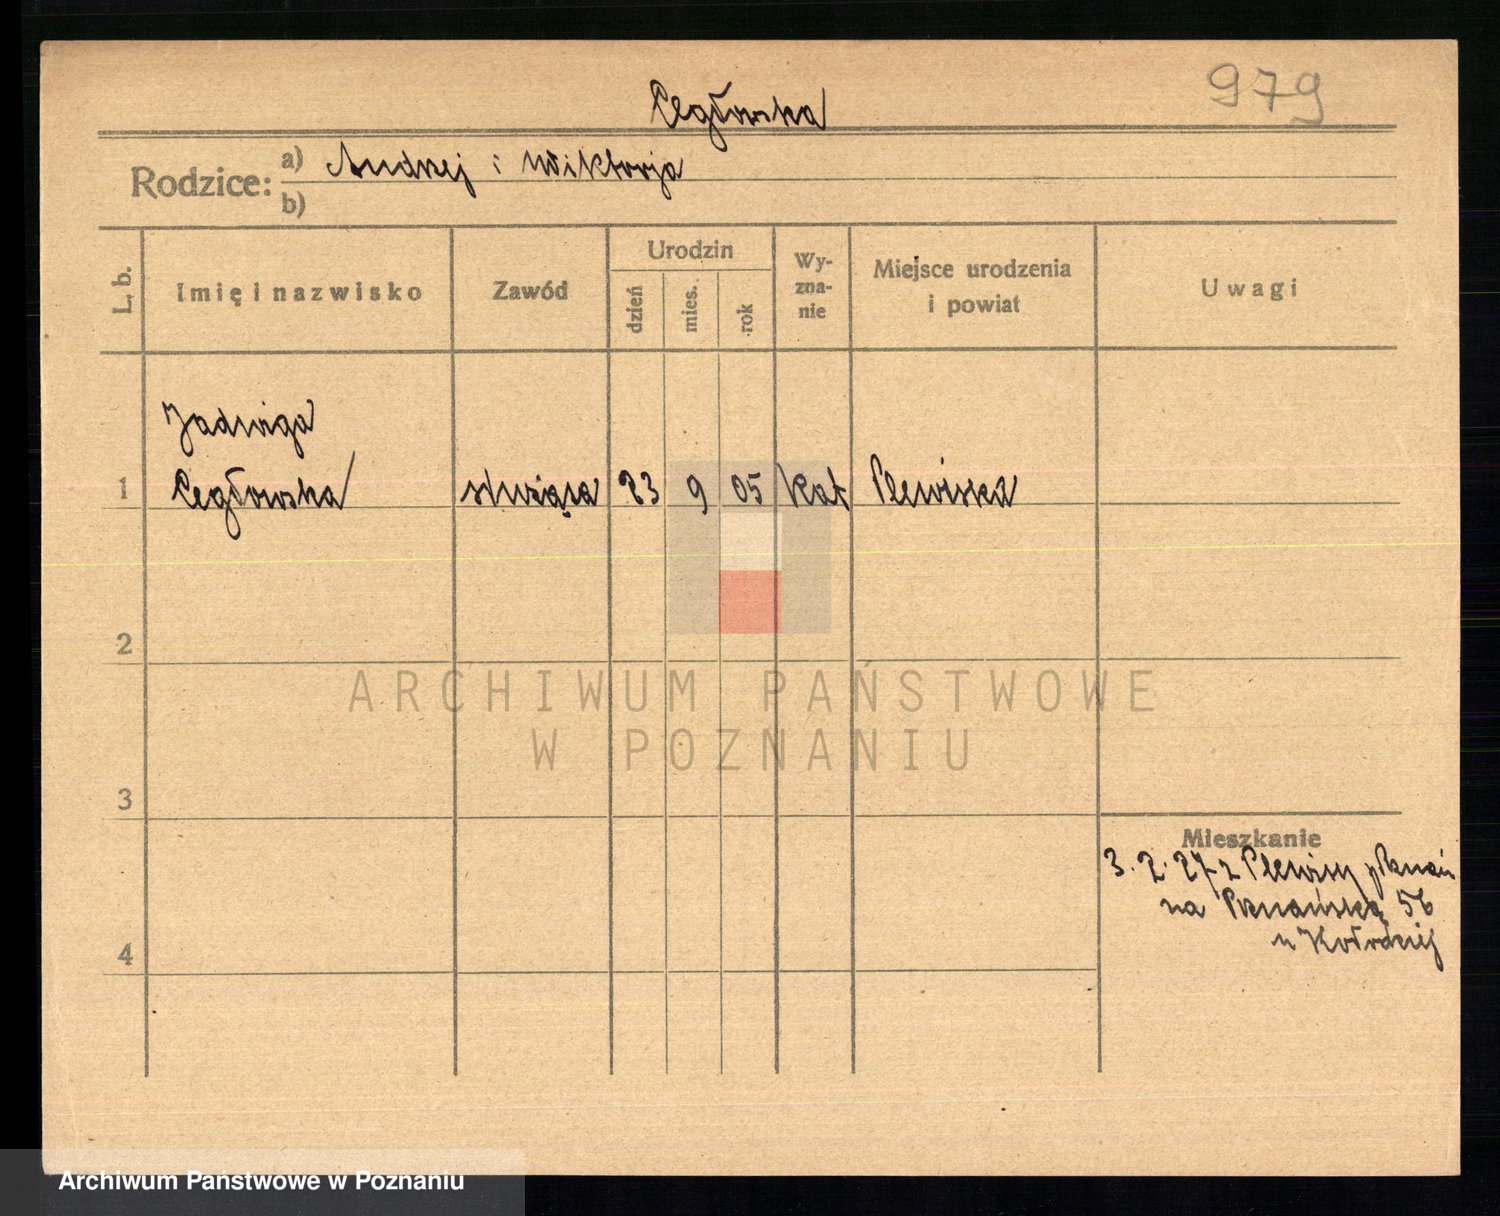 979
Cegłowska
Rodzice: a) Andrzej i Wiktorja
b)
L. b. Imię i nazwisko Zawód Urodzin dzień mies. rok Wy-zna-nie Miejsce urodzenia i powiat Uwagi
Jadwiga
1 Cegłowska służąca 23 9 05 kat Plewiska
2
ARCHIWUM PAŃSTWOWE
W POZNANIU
3
Mieszkanie
3. 2. 27 z Plewisk
na Poznańską 56
4 u Kołodziej
Archiwum Państwowe w Poznaniu